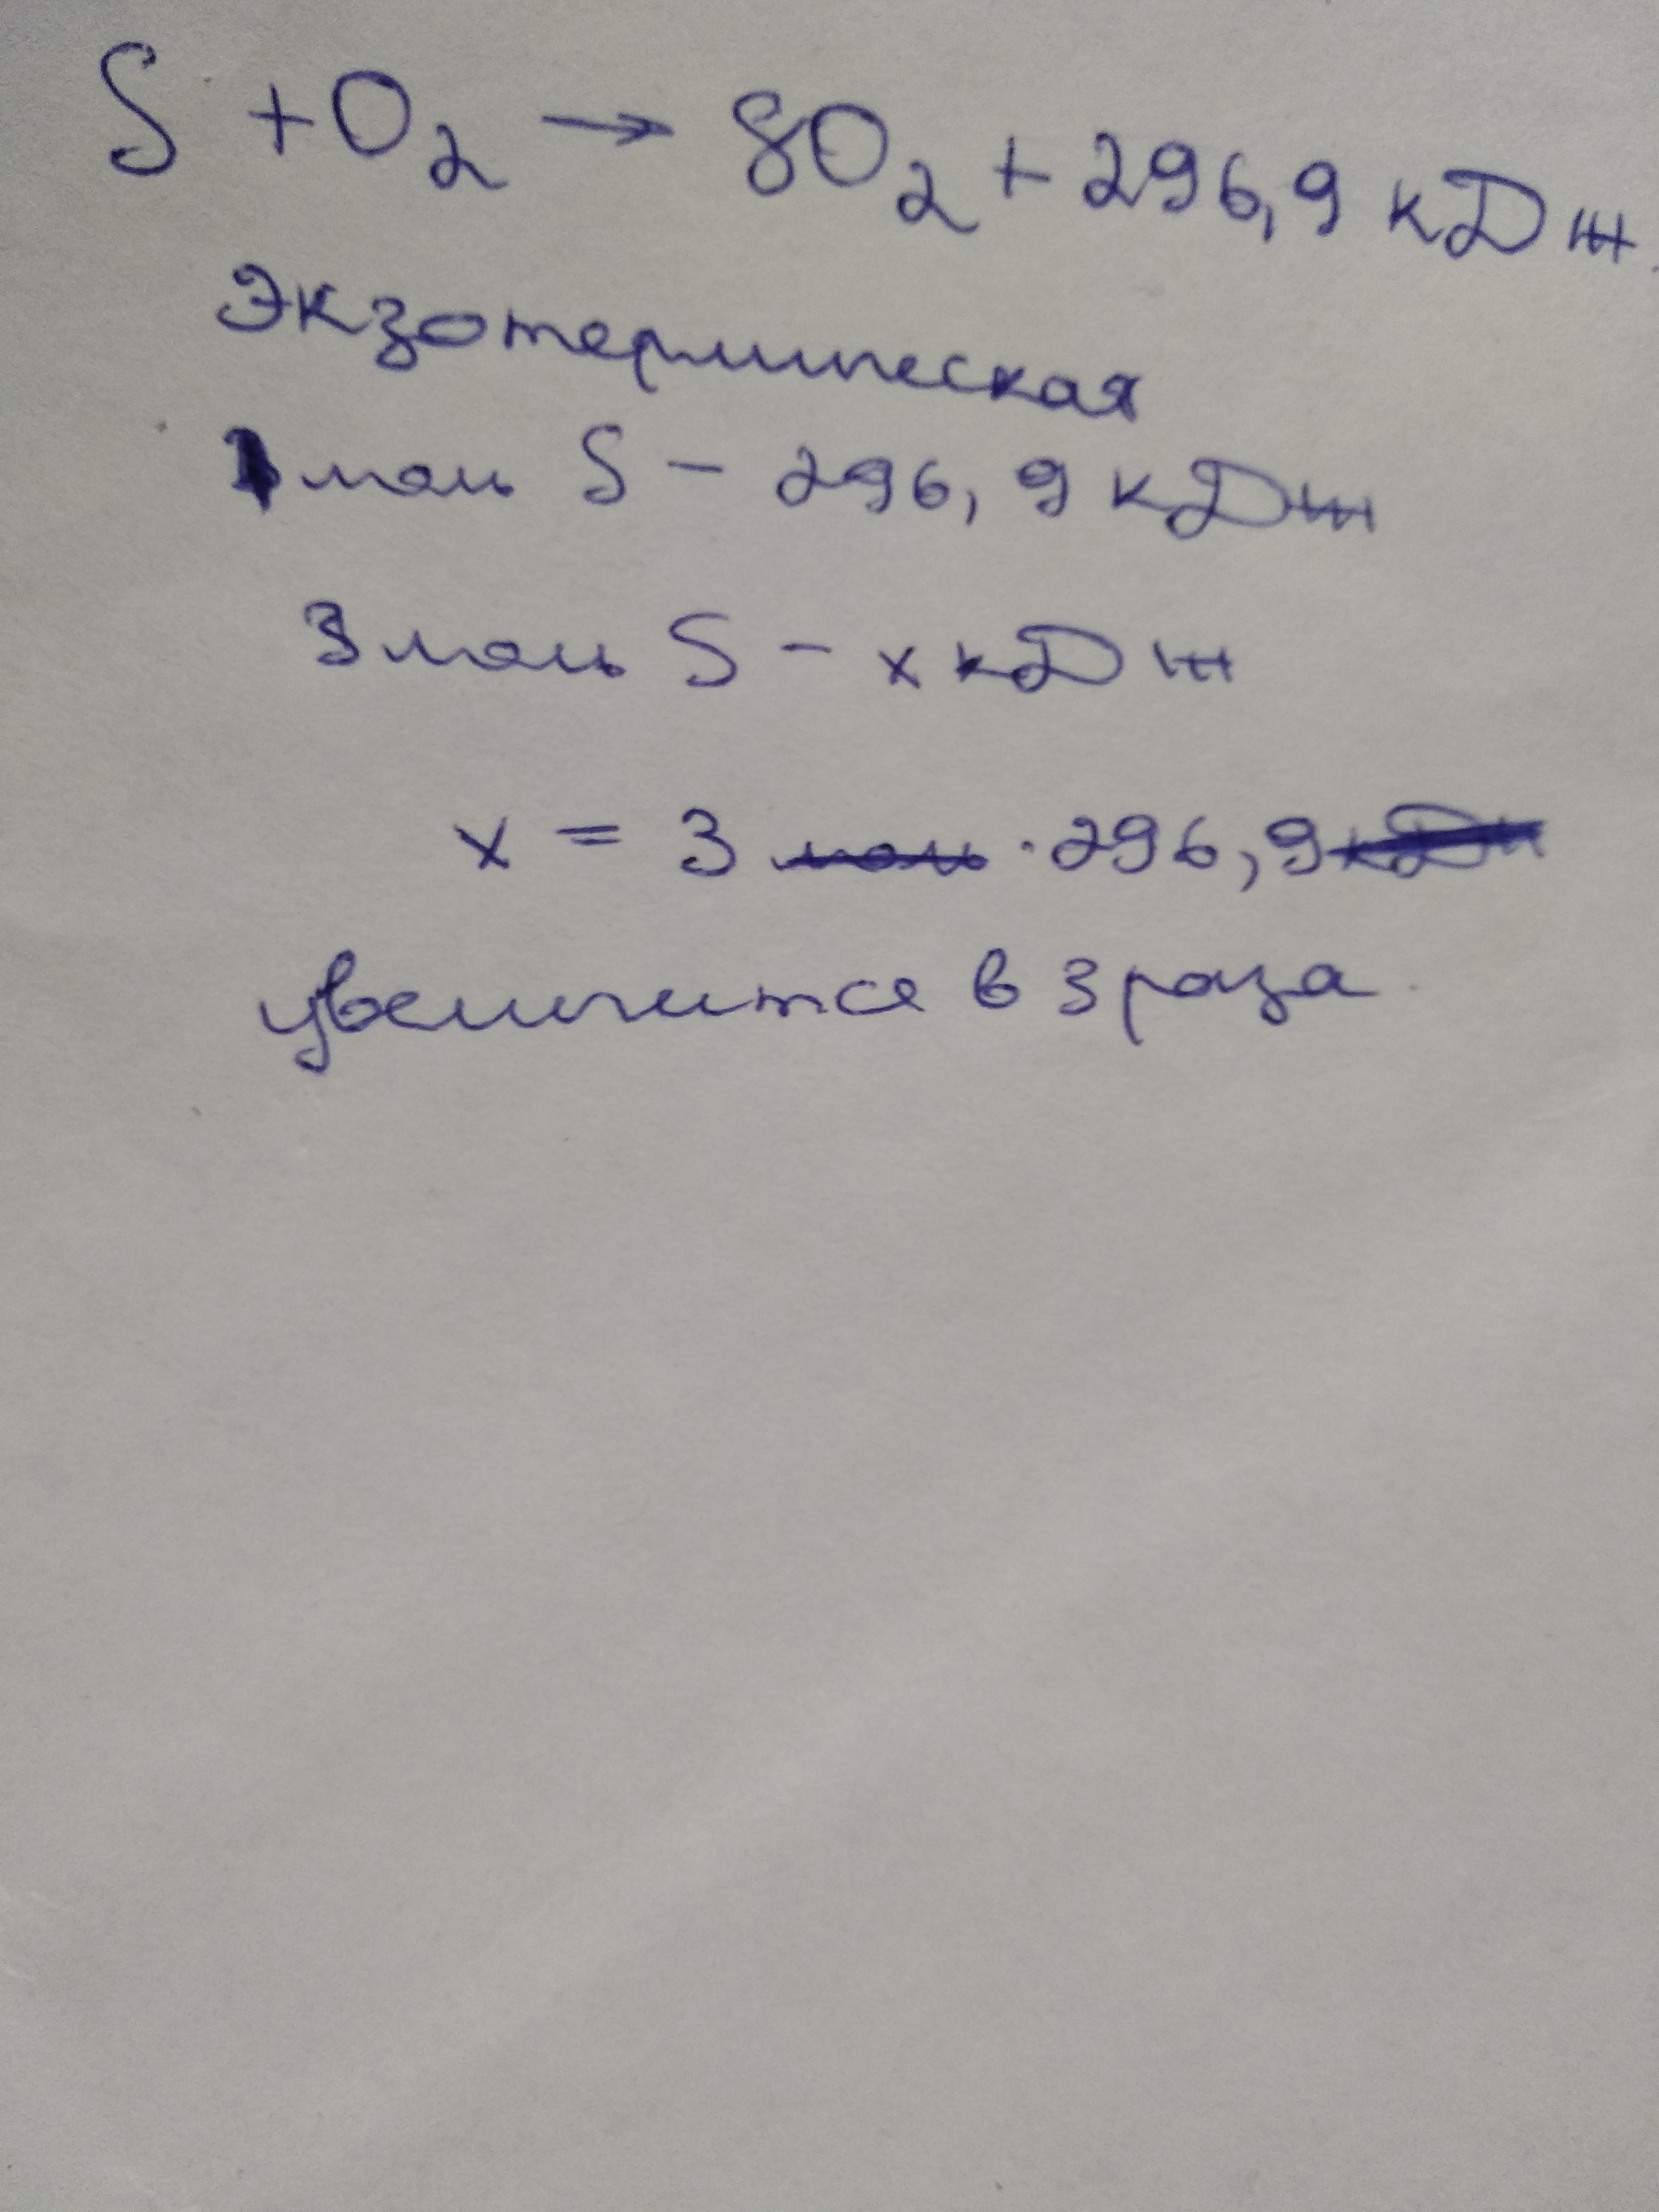 S + O₂ → SO₂ + 296,9 кДж.
Экзотермическая
1 моль S – 296,9 кДж
3 моль S – х кДж
х = 3 моль · 296,9 кДж
увеличится в 3 раза